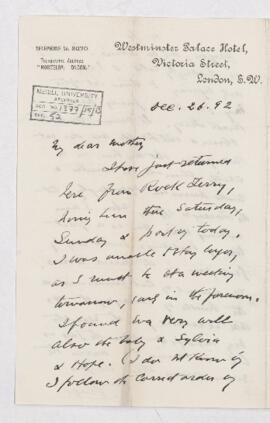 Westminster Palace Hotel,
Victoria Street,
London, S.W.
TELEPHONE No.
TELEGRAPHIC ADDRESS
McGILL UNIVERSITY
ARCHIVES
ACC. NO. 1377
REF. 52
Dec. 26. 92
My dear Mother
I have just returned
here from Rock Ferry,
having been there Saturday,
Sunday & part of today.
I was unable to stay longer,
as I must be at a meeting
tomorrow, early in the forenoon.
I found Eva very well
also the baby & Sylvia
& Hope. (I do not know if
I follow the correct order of